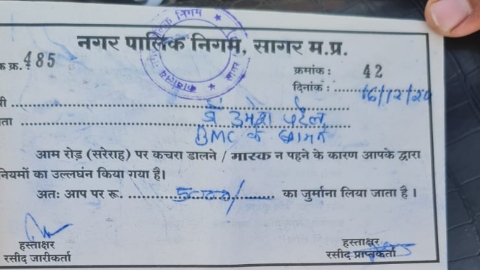 नगर पालिक निगम, सागर म.प्र.
क्र. 485
क्रमांक : 42
दिनांक : 16/12/20
डॉ उमेश पटेल
ता BMC के सामने
आम रोड़ (सरेराह) पर कचरा डालने / मास्क न पहने के कारण आपके द्वारा
नियमों का उल्लघंन किया गया है।
अतः आप पर रू. 5000/- का जुर्माना लिया जाता है ।
हस्ताक्षर
रसीद जारीकर्ता
हस्ताक्षर
रसीद प्राप्तकर्ता